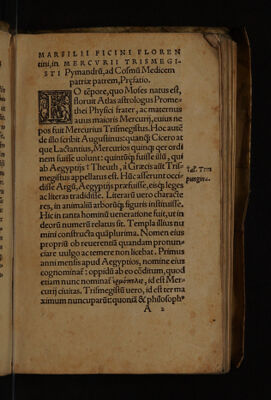 MARSILII FICINI FLOREN
tini, in MERCVRII TRISMEGI-
STI Pymandrũ, ad Cosmũ Medicem
patriæ patrem, Præfatio.
EO tẽpore, quo Moses natus est,
floruit Atlas astrologus Prome-
thei Physici frater, ac maternus
auus maioris Mercurij, cuius ne
pos fuit Mercurius Trismegistus. Hoc autẽ
de illo scribit Augustinus: quanq̃ Cicero at
que Lactantius, Mercurios quinq; per ordi
nem fuisse uolunt: quintũq; fuisse illũ, qui
ab Aegyptijs Theuth, à Græcis aũt Tris
megistus appellatus est. Hũc asserunt occi-
disse Argũ, Aegyptijs præfuisse, eisq; leges
ac literas tradidisse. Literarũ uero characte
res, in animaliũ arborũq; figuris instituisse.
Hic in tanta hominũ ueneratione fuit, ut in
deorũ numerũ relatus sit. Templa illius nu
mini constructa quãplurima. Nomen eius
propriũ ob reuerentiã quandam pronun-
ciare uulgo ac temere non licebat. Primus
anni mensis apud Aegyptios, nomine eius
cognominať: oppidũ ab eo cõditum, quod
etiam nunc nominať ἑρμόπολις, id est Mer-
curij ciuitas. Trismegistũ uero, id est ter ma
ximum nuncuparũt: quoniã & philosoph⁹
A 2